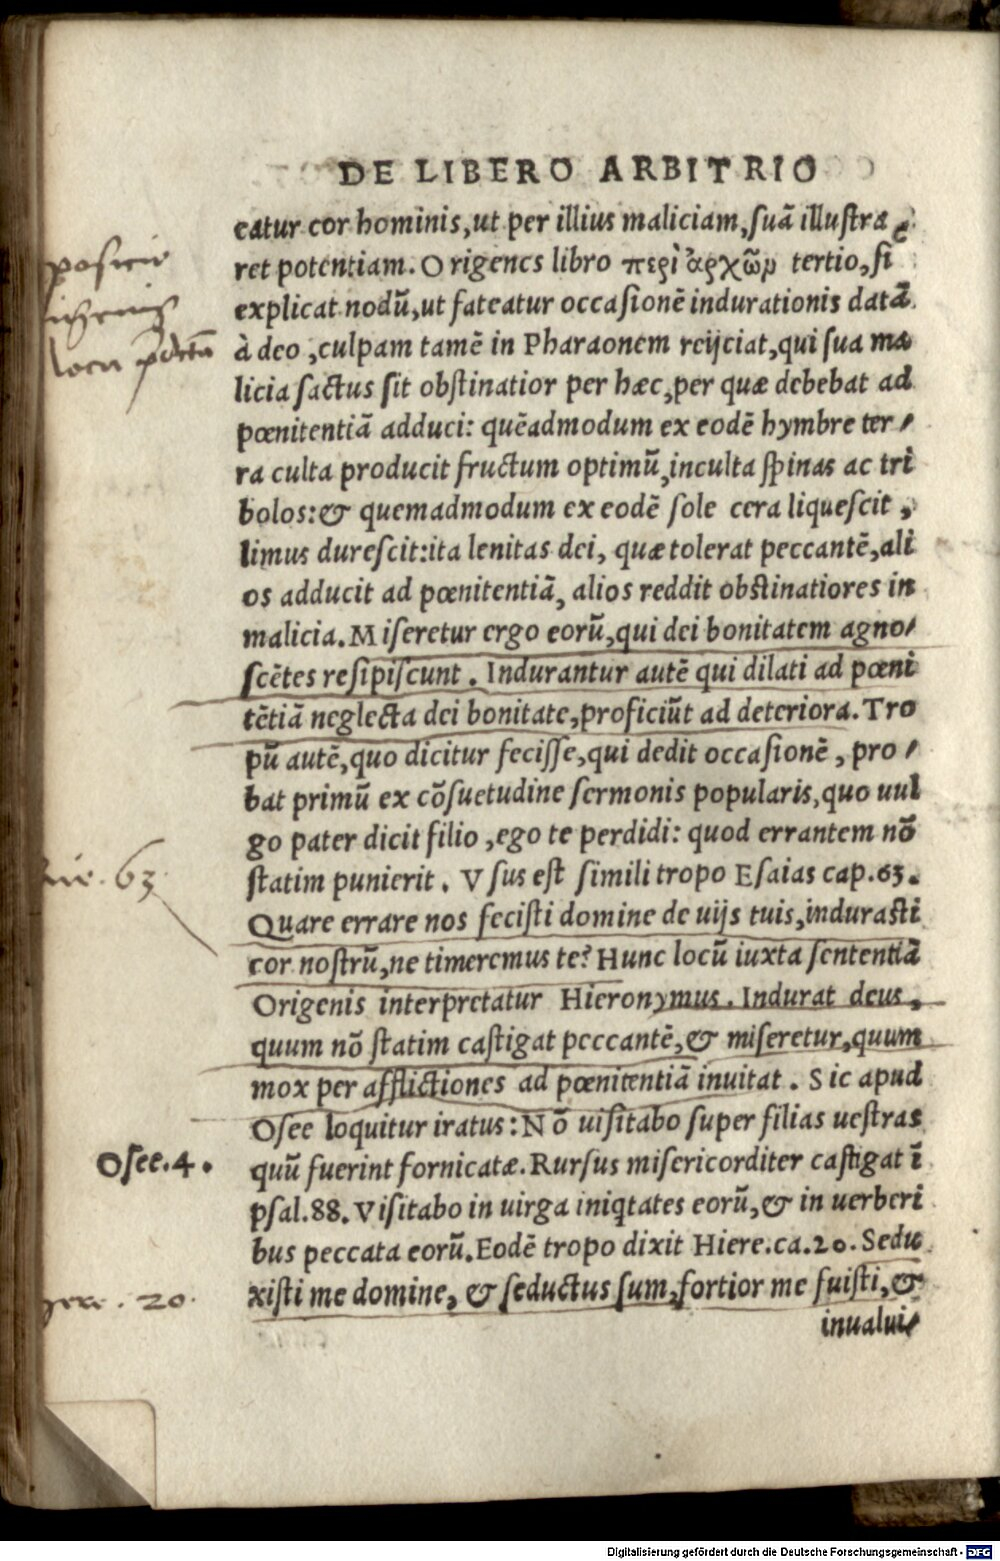 DE LIBERO ARBITRIO
catur cor hominis,ut per illius maliciam,suā illustra
ret potentiam. Origenes libro περὶ ἀρχῶν tertio,si
explicat nodū,ut fateatur occasionē indurationis datā
à deo ,culpam tamē in Pharaonem reijciat,qui sua ma
licia factus sit obstinatior per hæc,per quæ debebat ad
pœnitentiā adduci: quēadmodum ex eodē hymbre ter/
ra culta producit fructum optimū,inculta spinas ac tri
bolos:& quemadmodum ex eodē sole cera liquescit ,
limus durescit:ita lenitas dei, quæ tolerat peccantē,ali
os adducit ad pœnitentiā, alios reddit obstinatiores in
malicia. Miseretur ergo eorū,qui dei bonitatem agno/
scētes resipiscunt . Indurantur autē qui dilati ad pœni
tētiā neglecta dei bonitate,proficiūt ad deteriora. Tro
pū autē,quo dicitur fecisse,qui dedit occasionē , pro/
bat primū ex cōsuetudine sermonis popularis,quo uul
go pater dicit filio ,ego te perdidi: quod errantem nō
statim punierit . Vsus est simili tropo Esaias cap.63.
Quare errare nos fecisti domine de uijs tuis,indurasti
cor nostrū,ne timeremus te? Hunc locū iuxta sententiā
Origenis interpretatur Hieronymus. Indurat deus,
quum nō statim castigat peccantē,& miseretur,quum
mox per afflictiones ad pœnitentiā inuitat . Sic apud
Osee loquitur iratus: Nō uisitabo super filias uestras
Osee.4.
quū fuerint fornicatæ. Rursus misericorditer castigat ī
psal.88. Visitabo in uirga iniqtates eorū,& in uerberi
bus peccata eorū. Eodē tropo dixit Hiere.ca.20. Sedu
xisti me domine, & seductus sum,fortior me fuisti,&
inualui/
63
20.
Digitalisierung gefördert durch die Deutsche Forschungsgemeinschaft - DFG